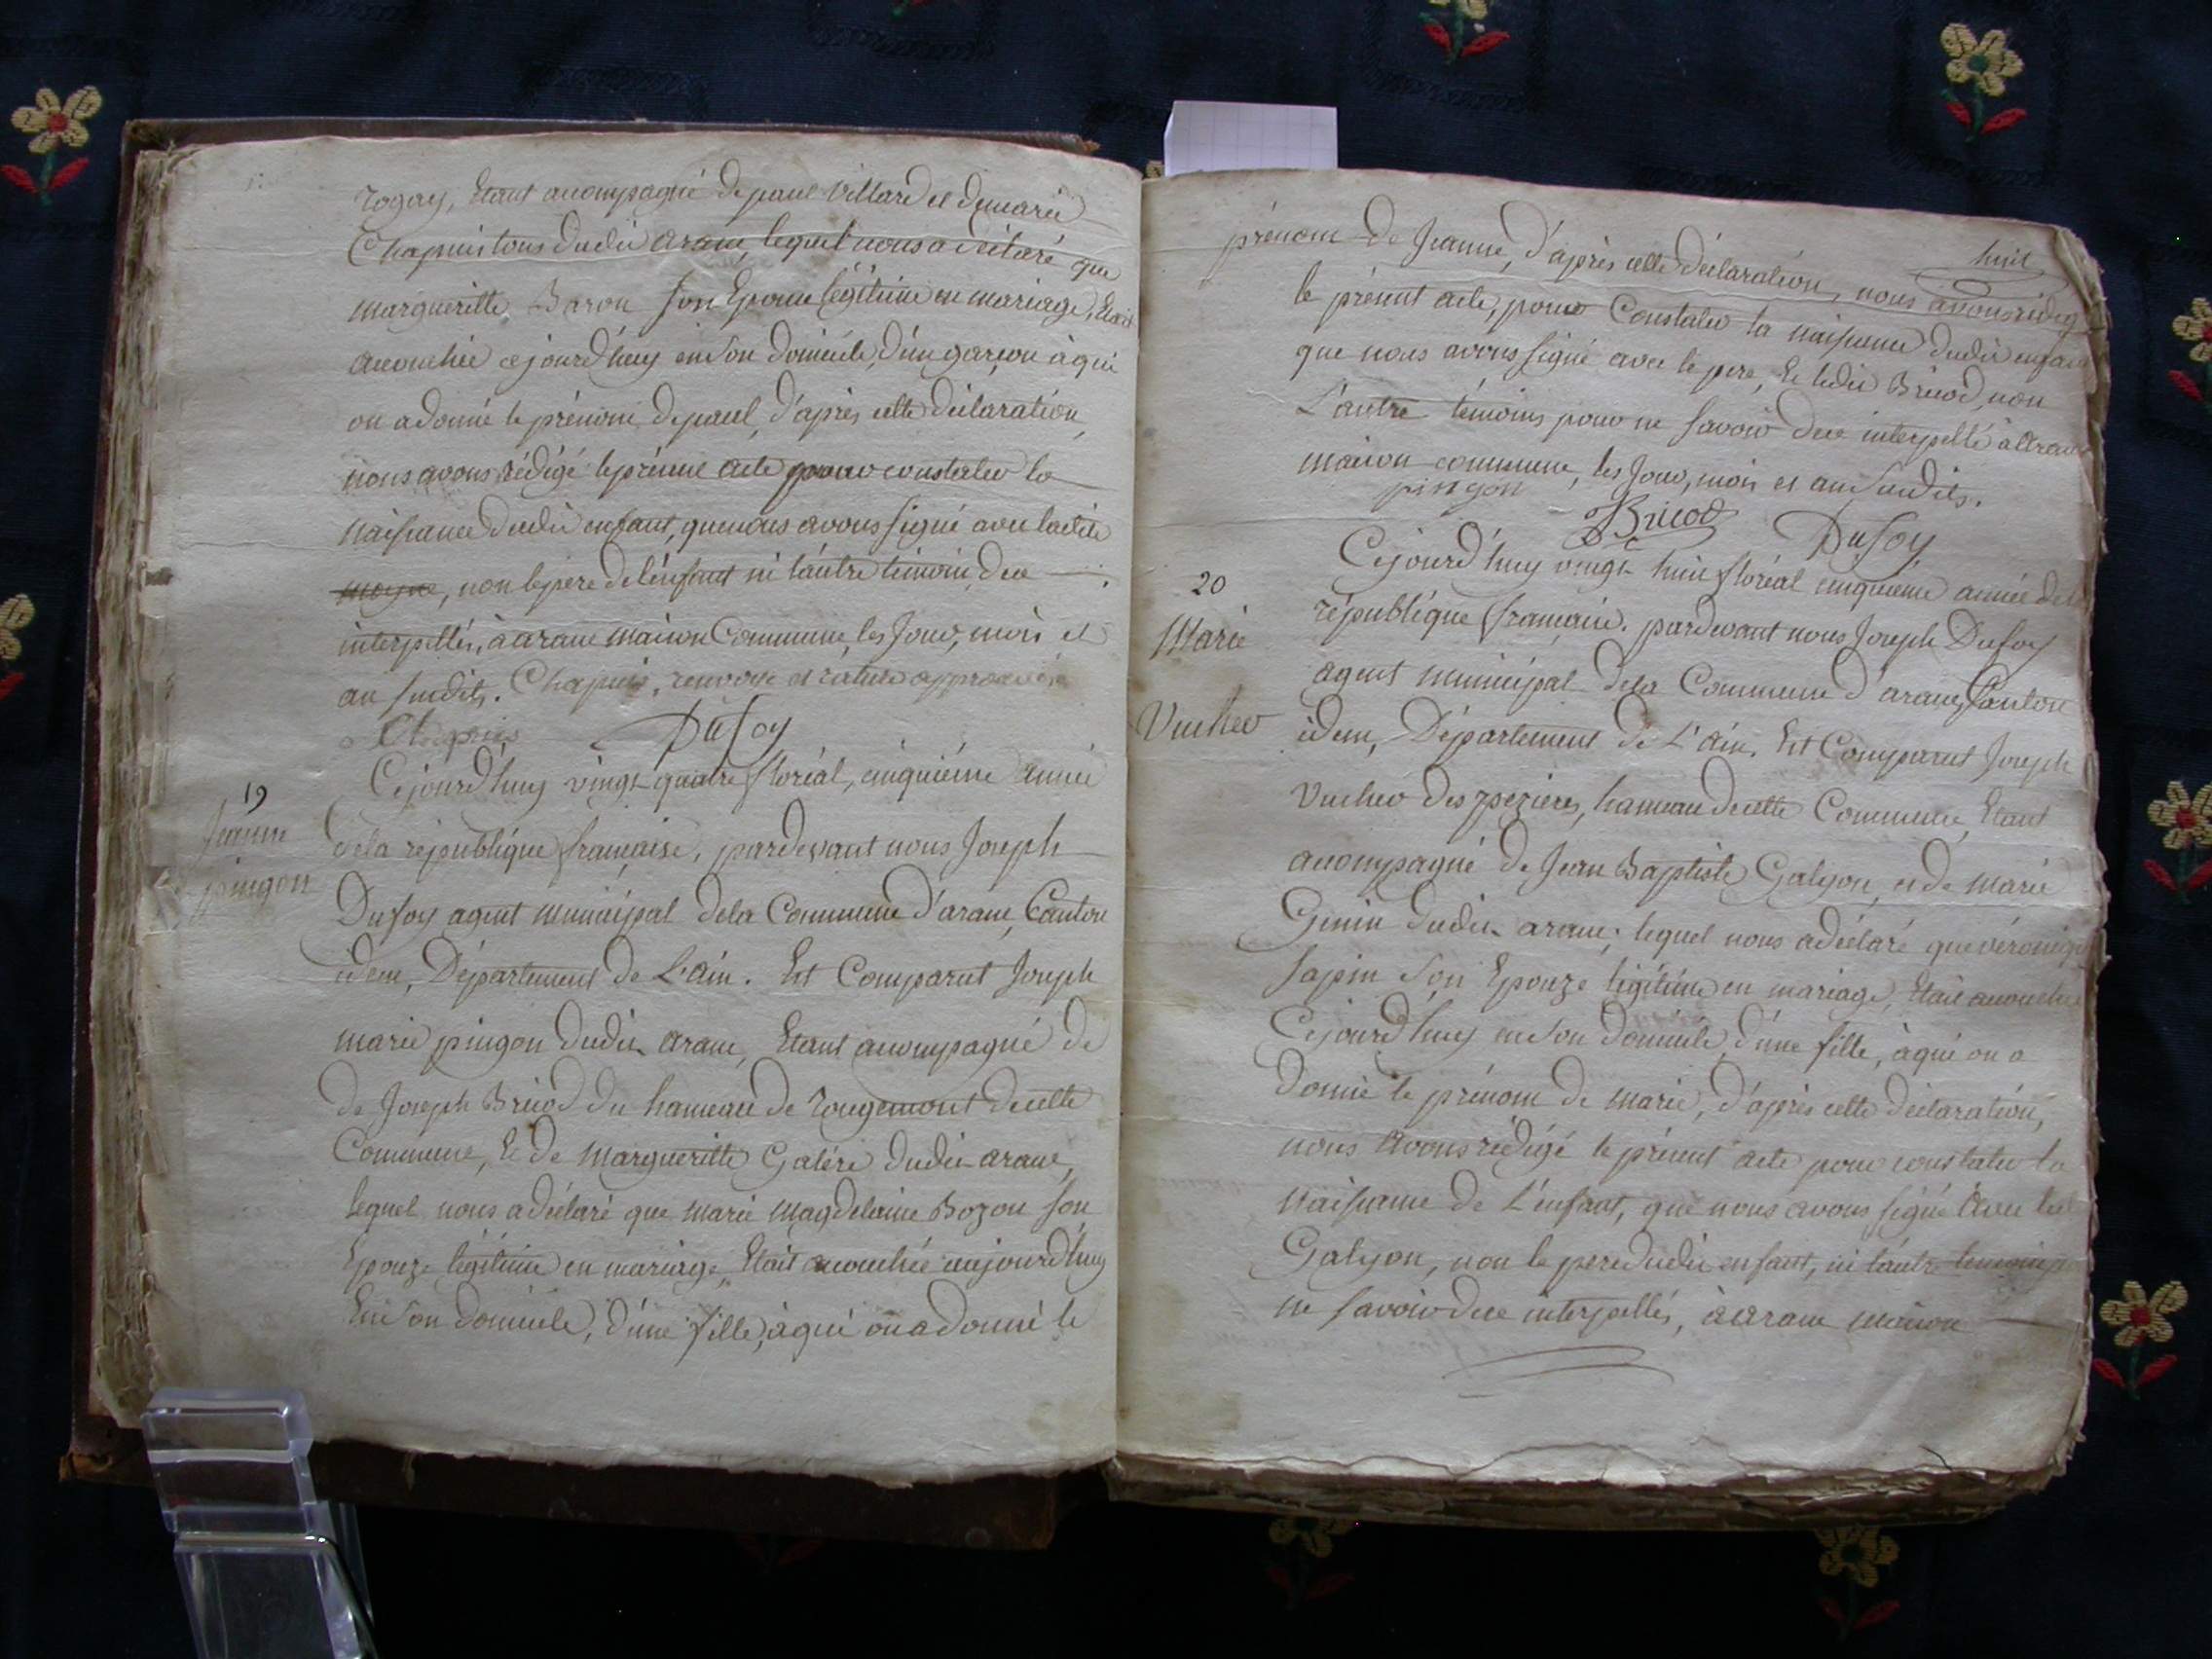 rogay, Etant accompagné de paul Villard et de marie
Chapuis tous dudit arane, lequel nous a déclaré que
margueritte Baron son Epouse légitime en mariage, Etait
accouchée cejourd'huy en son domicile, d'un garçon à qui
on a donné le prénom de paul, d'après cette déclaration,
nous avons rédigé le présent acte pour constater la
naissance dudit enfant, que nous avons signé avec ladite
non le pere de l'enfant ni l'autre témoin de ce
interpellés, à arane maison Commune, les Jour, mois et
an susdits. Chapuis, renvoye et rature approuvés
Chapuis Dufoy
19
Jeanne
pingon
Cejourd'huy vingt-quatre floréal, cinquième année
de la république française, pardevant nous Joseph
Dufoy agent municipal de la Commune d'arane, Canton
idem, Département de L'ain. Est Comparut Joseph
marie pingon dudit arane, Etant accompagné de
de Joseph Bricod du hameau de rougemont de cette
Commune, Et de margueritte Galére dudit arane,
lequel nous a déclaré que marie magdelaine Bozon son
Epouze légitime en mariage, Etait accouchée aujourd'huy
En son domicile, d'une fille, à qui on a donné le
huit
prénom de Jeanne, d'après cette déclaration, nous avons rédigé
le présent acte, pour Constater la naissance dudit enfant
que nous avons signé avec le pere, Et ledit Bricod, non
L'autre témoins pour ne savoir de ce interpellé à arane
maison commune, les Jour, mois et an susdits.
pingon Bricod Dufoy
20
Marie
Vucher
Cejourd'huy vingt-huit floréal cinquième année de la
république française. pardevant nous Joseph Dufoy
agent municipal de la Commune d'arane, Canton
idem, Département de L'ain. Est Comparut Joseph
Vucher des pezieres, hameau de cette Commune, Etant
accompagné de Jean Baptiste Galyon, et de marie
Genin dudit arane; lequel nous a déclaré que véronique
sapin son Epouze légitime en mariage, Etait accouchée
Cejourd'huy en son domicile, d'une fille, à qui on a
Donné le prénom de marie, d'après cette déclaration,
nous avons rédigé le présent acte pour constater la
naissance de L'enfant, que nous avons signé avec led
Galyon, non le pere dudit enfant, ni l'autre temoin
ne savoir de ce interpellés, à arane maison